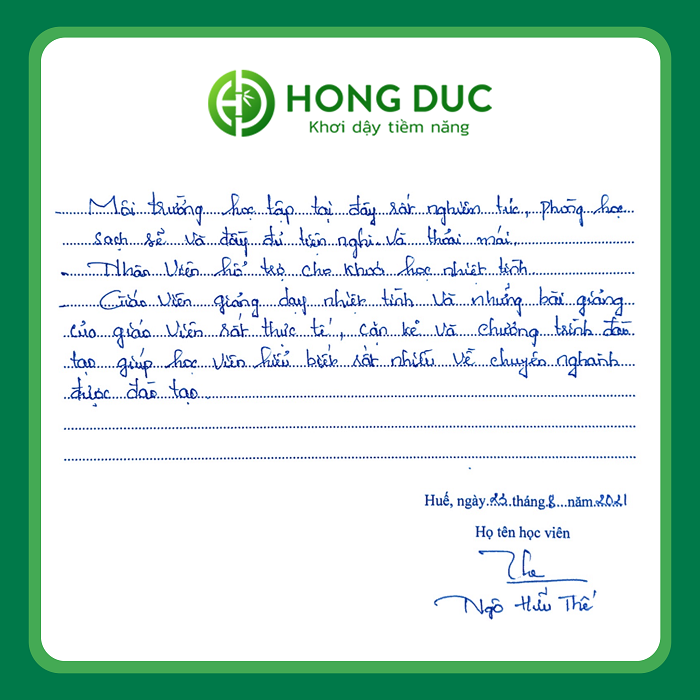 HONG DUC
Khơi dậy tiềm năng
- Môi trường học tập tại đây rất nghiêm túc, phòng học
sạch sẽ và đầy đủ tiện nghi và thoải mái.
- Nhân viên hổ trợ cho khoá học nhiệt tình
- Giáo viên giảng dạy nhiệt tình và những bài giảng
của giáo viên rất thực tế, cặn kẻ và chương trình đào
tạo giúp học viên hiểu biết rất nhiều về chuyên nghành
được đào tạo
Huế, ngày 23 tháng 8 năm 2021
Họ tên học viên
Thế
Ngô Hữu Thế